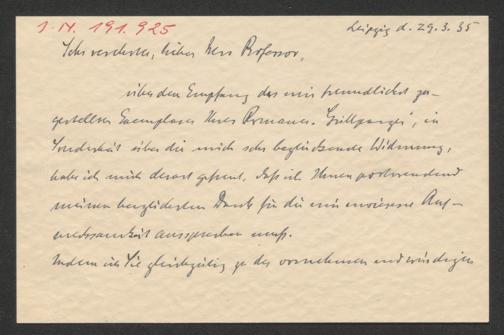 J. N. 191.925
Leipzig d. 29.3.35
Sehr verehrter, lieber Herr Professor,
über den Empfang des mir freundlichst zu-
gestellten Exemplares Ihres Romanes „Grillparzer", in
Sonderheit über die mich sehr beglückende Widmung,
habe ich mich derart gefreut, daß ich Ihnen postwendend
meinen herzlichsten Dank für die mir erwiesene Auf-
merksamkeit aussprechen muß.
Indem ich Sie gleichzeitig zu der vornehmen und würdigen